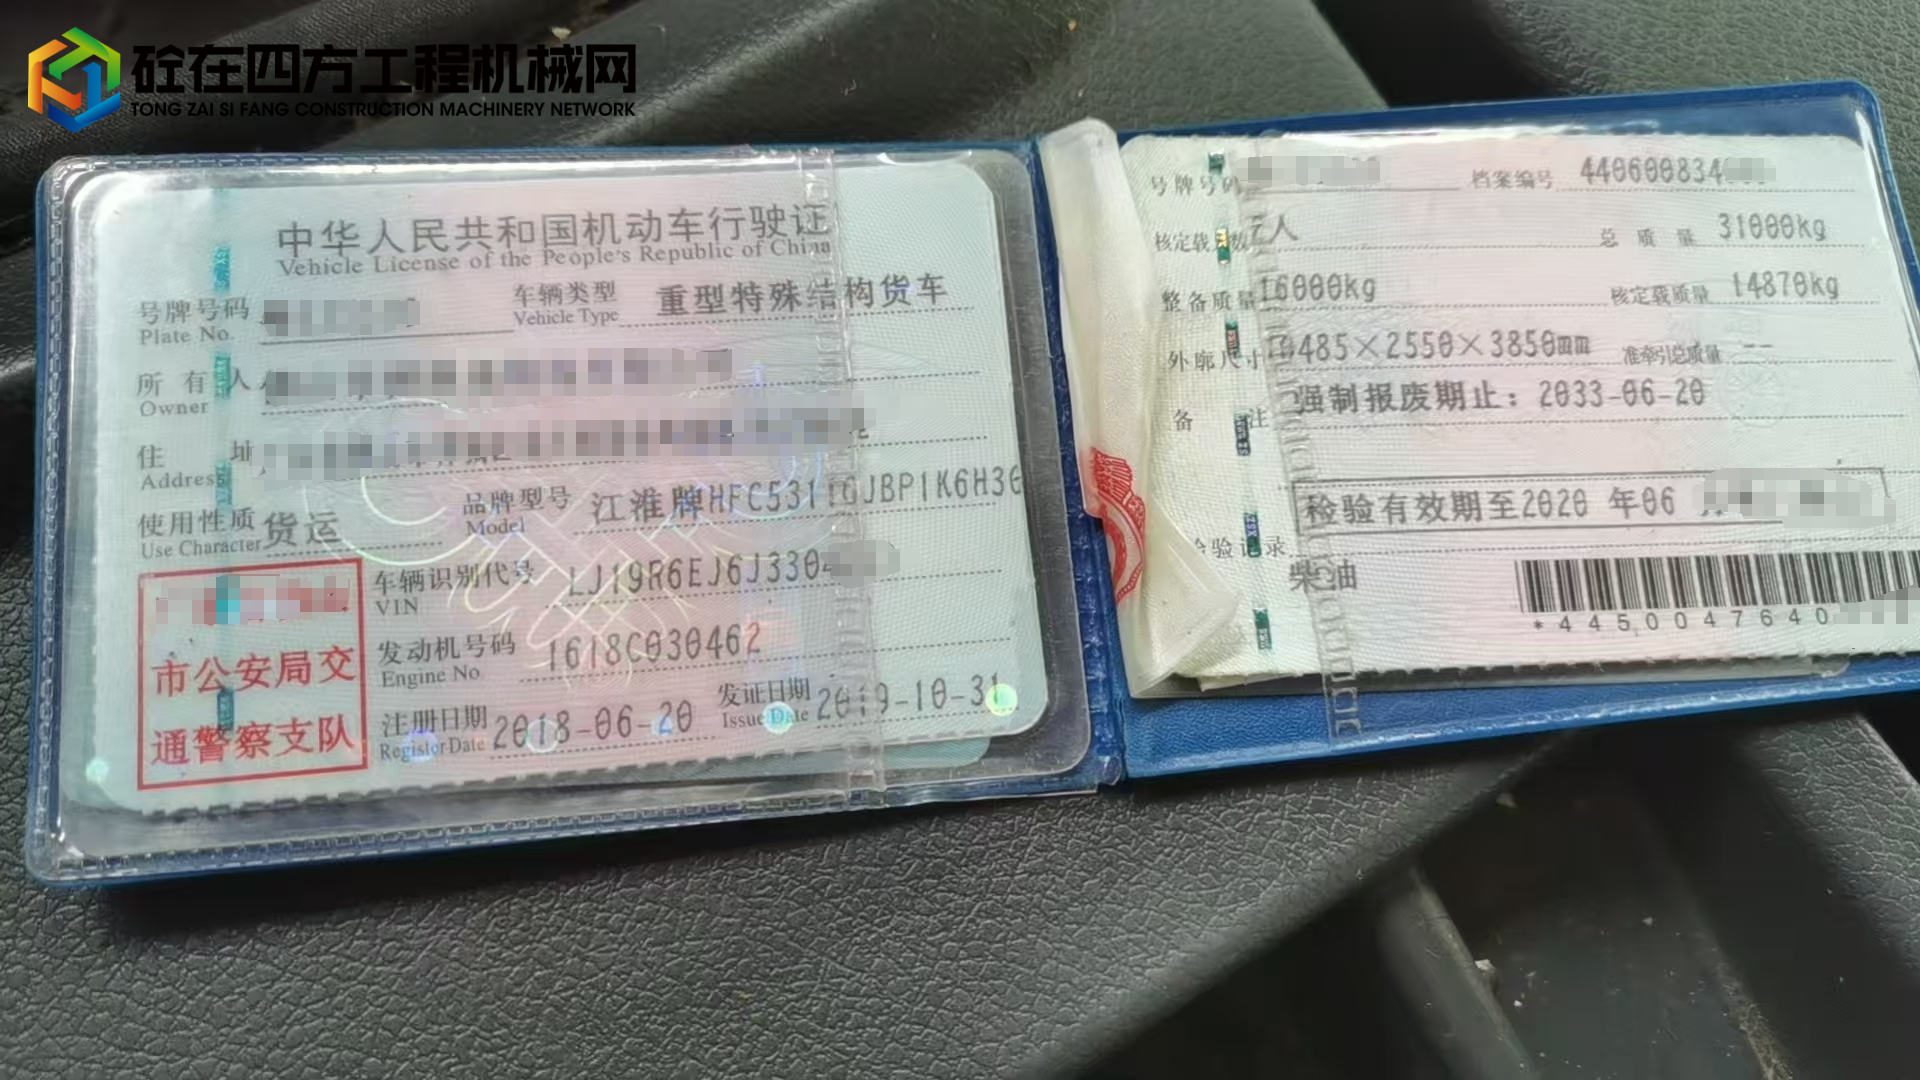 砼在四方工程机械网
TONG ZAI SI FANG CONSTRUCTION MACHINERY NETWORK
中华人民共和国机动车行驶证
Vehicle License of the People's Republic of China
号牌号码
Plate No.
车辆类型 重型特殊结构货车
Vehicle Type
所有人
Owner
住址
Address
使用性质 货运
Use Character
品牌型号 江淮牌HFC5311GJBP1K6H3
Model
车辆识别代号 LJ19R6EJ6J330
VIN
发动机号码 1618C030462
Engine No.
注册日期 2018-06-20
Register Date
发证日期 2019-10-31
Issue Date
市公安局交
通警察支队
号牌号码
档案编号 440600834
核定载 数 人
总质量 31000kg
整备质量 16000kg
核定载质量 14870kg
外廓尺寸 10485×2550×3850mm
准牵引总质量 --
备注 强制报废期止：2033-06-20
检验有效期至2020 年06
检验记录
柴油
*4450047640